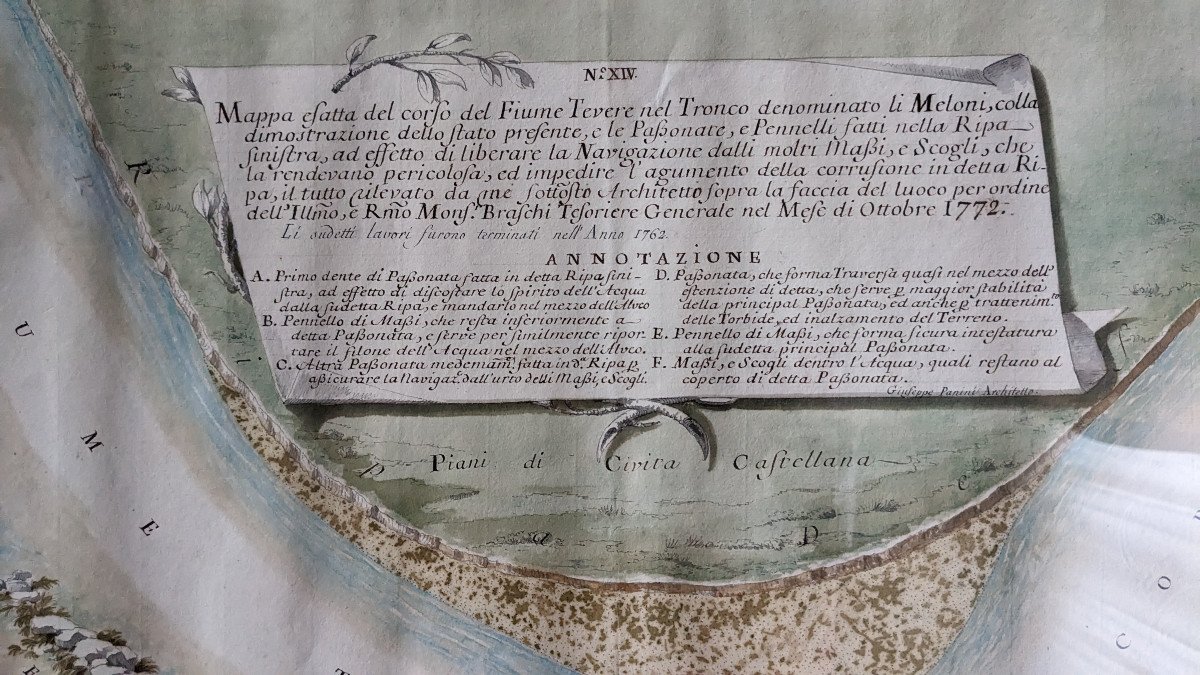 N.º XIV.
Mappa esatta del corso del Fiume Tevere nel Tronco denominato li Meloni, colla
dimostrazione dello stato presente, e le Paßonate, e Pennelli fatti nella Ripa
sinistra, ad effetto di liberare la Navigazione dalli moltri Maßi, e Scogli, che
la rendevano pericolosa, ed impedire l'agumento della corrusione in detta Ri-
pa, il tutto rilevato da me sottosto Architetto sopra la faccia del luoco per ordine
dell'Illmo, e Rmo Monsr. Braschi Tesoriere Generale nel Mese di Ottobre 1772.
Li sudetti lavori furono terminati nell'Anno 1762.
ANNOTAZIONE
A. Primo dente di Paßonata fatta in detta Ripa sini-
stra, ad effetto di discostare lo spirito dell'Acqua
dalla sudetta Ripa, e mandarlo nel mezzo dell'Alveo
B. Pennello di Maßi, che resta inferiormente a
detta Paßonata, e serve per similmente ripor-
tare il filone dell'Acqua nel mezzo dell'Alveo.
C. Altra Paßonata medemamt. fatta in da. Ripa p
aßicurare la Navigaz. dall'urto delli Maßi, e Scogli.
D. Paßonata, che forma Traversa quasi nel mezzo dell'
estenzione di detta, che serve p maggior stabilità
della principal Paßonata, ed anche p trattenimto
delle Torbide, ed inalzamento del Terreno.
E. Pennello di Maßi, che forma sicura intestatura
alla sudetta principal Paßonata.
F. Maßi, e Scogli dentro l'Acqua, quali restano al
coperto di detta Paßonata.
Giuseppe Panini Architetto.
Piani di Civita Castellana
R i p a D e
U M E
C O